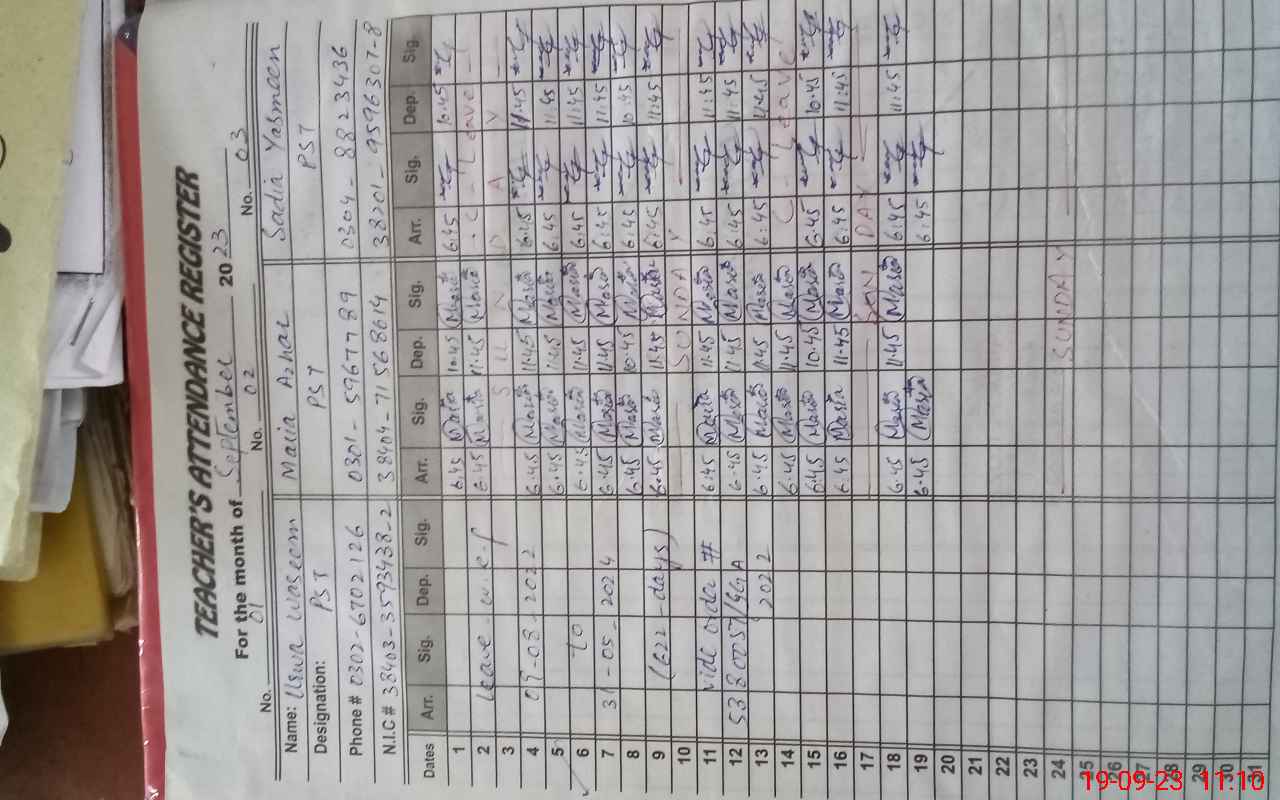 TEACHER'S ATTENDANCE REGISTER
For the month of September 2023
No. 01 No. 02 No. 03
Name: Uswa Waseem Maria Azhar Sadia Yasmeen
Designation: PST PST PST
Phone # 0302-6702126 0301-5967789 0304-8823436
N.I.C # 38403-3593438-2 38404-7156861-4 38201-9596307-8
Dates Arr. Sig. Dep. Sig. Arr. Sig. Dep. Sig. Arr. Sig. Dep. Sig.
1 6.45 Maria 10.45 Maria 6.45 10.45
2 Leave w.e.f 6.45 Maria 11.45 Maria C - Leave -
3 S U N D A Y
4 09-08-2022 6.45 Maria 11.45 Maria 6.45 11.45
5 6.45 Maria 11.45 Maria 6.45 11.45
6 to 6.45 Maria 11.45 Maria 6.45 11.45
7 31-05-2024 6.45 Maria 11.45 Maria 6.45 11.45
8 6.45 Maria 10.45 Maria 6.45 10.45
9 (622-days) 6.45 Maria 11.45 Maria 6.45 11.45
10 SUNDAY
11 vide order # 6.45 Maria 11.45 Maria 6.45 11.45
12 5380057/GGA 6.45 Maria 11.45 Maria 6.45 11.45
13 2022 6.45 Maria 11.45 Maria 6.45 11.45
14 6.45 Maria 11.45 Maria C - Leave
15 6.45 Maria 10.45 Maria 6.45 10.45
16 6.45 Maria 11.45 Maria 6.45 11.45
17 SUNDAY
18 6.45 Maria 11.45 Maria 6.45 11.45
19 6.45 Maria 6.45
20
21
22
23
24 SUNDAY
25
26
27
28
29
30
31
19-09-23 11:10